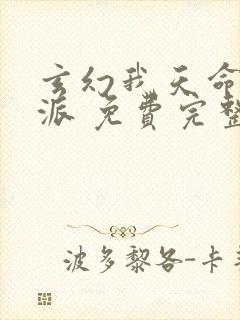 玄幻我天命
派 免費完整
波多黎各-卡